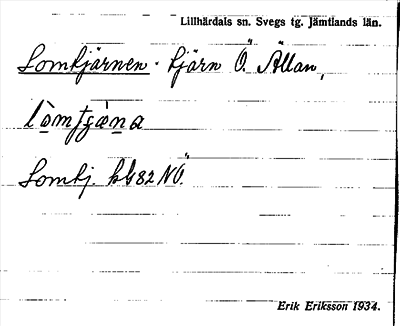 Lillhärdals sn. Svegs tg. Jämtlands län.
Lomtjärnen · tjärn Ö. Ällan,
Lomtj. kb 82 NÖ.
Erik Eriksson 1934.